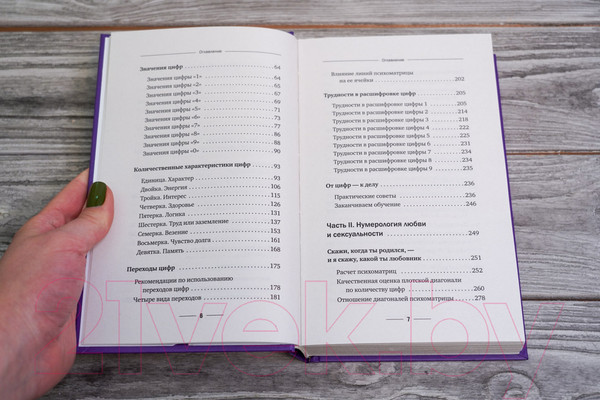 Оглавление
Значения цифр 64
Значения цифры «1» 64
Значения цифры «2» 65
Значения цифры «3» 67
Значения цифры «4» 69
Значения цифры «5» 71
Значения цифры «6» 73
Значения цифры «7» 77
Значения цифры «8» 86
Значения цифры «9» 88
Значения цифры «0» 90
Количественные характеристики цифр 93
Единица. Характер 93
Двойка. Энергия 106
Тройка. Интерес 115
Четверка. Здоровье 126
Пятерка. Логика 131
Шестерка. Труд или заземление 137
Семерка. Везение 153
Восьмерка. Чувство долга 161
Девятка. Память 168
Переходы цифр 175
Рекомендации по использованию
переходов цифр 178
Четыре вида переходов 181
6
Оглавление
Влияние линий психоматрицы
на ее ячейки 202
Трудности в расшифровке цифр 205
Трудности в расшифровке цифры 1 205
Трудности в расшифровке цифры 2 214
Трудности в расшифровке цифры 3 218
Трудности в расшифровке цифры 4 222
Трудности в расшифровке цифры 5 225
Трудности в расшифровке цифры 6 231
Трудности в расшифровке цифры 7 234
Трудности в расшифровке цифры 8 234
Трудности в расшифровке цифры 9 235
От цифр — к делу 236
Практические советы 236
Заканчиваем обучение 246
Часть II. Нумерология любви
и сексуальности 249
Скажи, когда ты родился, —
и я скажу, какой ты любовник 251
Расчет психоматриц 252
Качественная оценка плотской диагонали
по количеству цифр 260
Отношение диагоналей психоматрицы 278
7
21vek.by